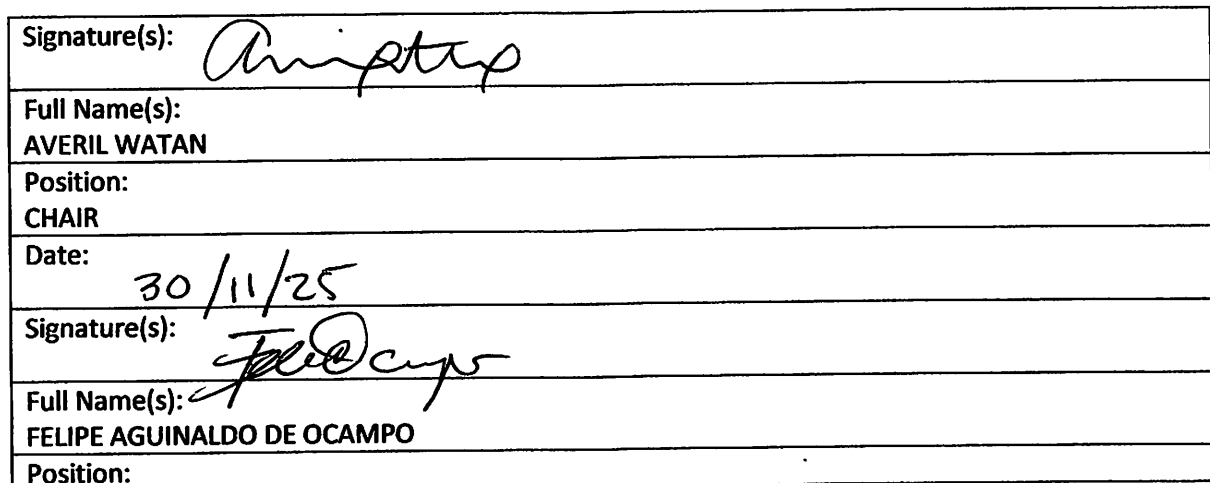 Signature(s):
Full Name(s):
AVERIL WATAN
Position:
CHAIR
Date:
30/11/25
Signature(s):
Full Name(s):
FELIPE AGUINALDO DE OCAMPO
Position: